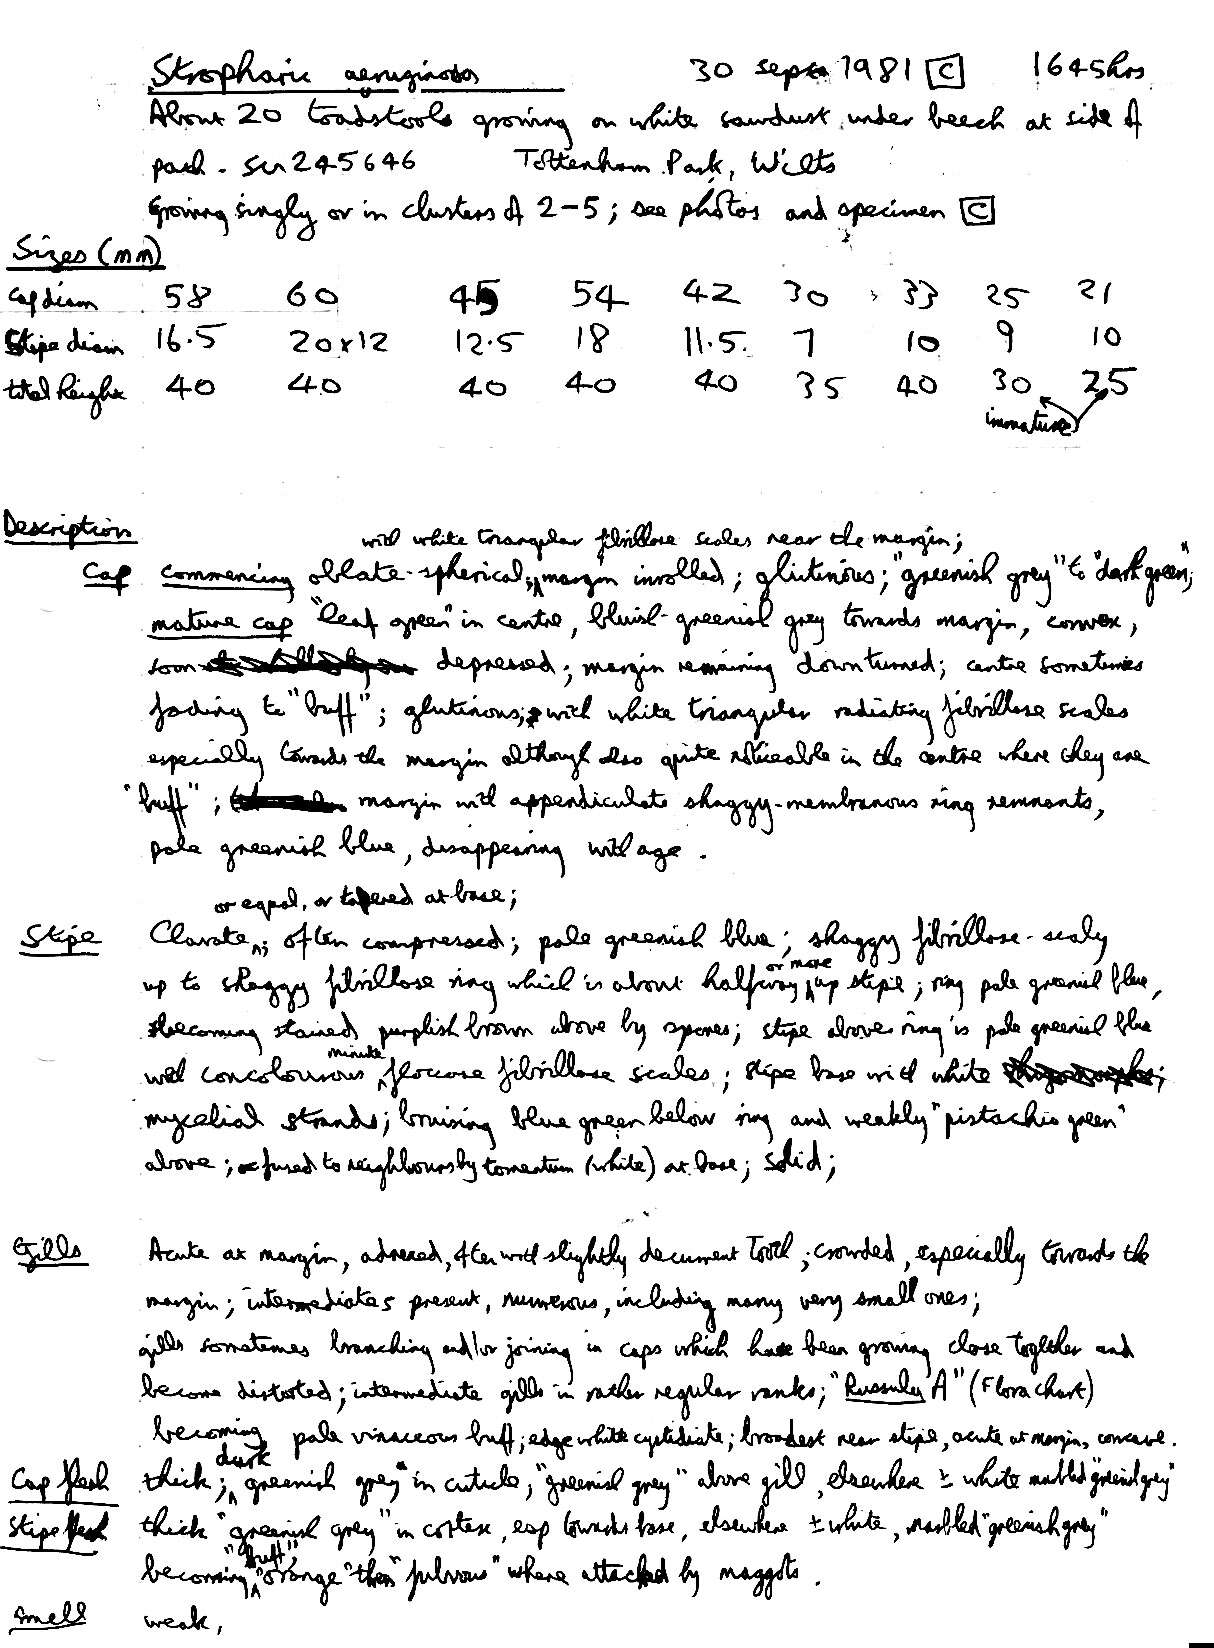 Stropharia aeruginosa 30 Sept 1981 [C] 1645hrs
About 20 toadstools growing on white sawdust under beech at side of
path. SU 245646 Tottenham Park, Wilts
Growing singly or in clusters of 2-5; see photos and specimen [C]
Sizes (mm)
Cap diam 58 60 45 54 42 30 33 25 21
Stipe diam 16.5 20x12 12.5 18 11.5 7 10 9 10
total height 40 40 40 40 40 35 40 30 25
immature
Description
with white triangular fibrillose scales near the margin;
Cap commencing oblate-spherical; margin inrolled; glutinous; "greenish grey" to "dark green";
mature cap "leaf green" in centre, bluish-greenish grey towards margin, convex,
soon depressed; margin remaining down turned; centre sometimes
fading to "buff"; glutinous; with white triangular radiating fibrillose scales
especially towards the margin although also quite noticeable in the centre where they are
"buff"; margin with appendiculate shaggy-membranous ring remnants,
pale greenish blue, disappearing with age.
or equal, or tapered at base;
Stipe Clavate; often compressed; pale greenish blue; shaggy fibrillose-scaly
or more
up to shaggy fibrillose ring which is about halfway up stipe; ring pale greenish blue,
becoming stained purplish brown above by spores; stipe above ring is pale greenish blue
minute
with concolourous floccose fibrillose scales; stipe base with white
mycelial strands; bruising blue green below ring and weakly "pistachio green"
above; fused to neighbours by tomentum (white) at base; solid;
Gills Acute at margin, adnexed, often with slightly decurrent tooth; crowded, especially towards the
margin; intermediates present, numerous, including many very small ones;
gills sometimes branching and/or joining in caps which have been growing close together and
become distorted; intermediate gills in rather regular ranks; "Russula A" (Flora chart)
becoming pale vinaceous buff; edge white cystidiate; broadest near stipe, acute at margin, concave.
dark
Cap flesh thick; greenish grey" in cuticle, "greenish grey" above gill, elsewhere ± white marbled "greenish grey"
Stipe flesh thick "greenish grey" in cortex, esp towards base, elsewhere ± white, marbled "greenish grey"
"buff",
becoming "orange" then "fulvous" where attacked by maggots.
Smell weak,